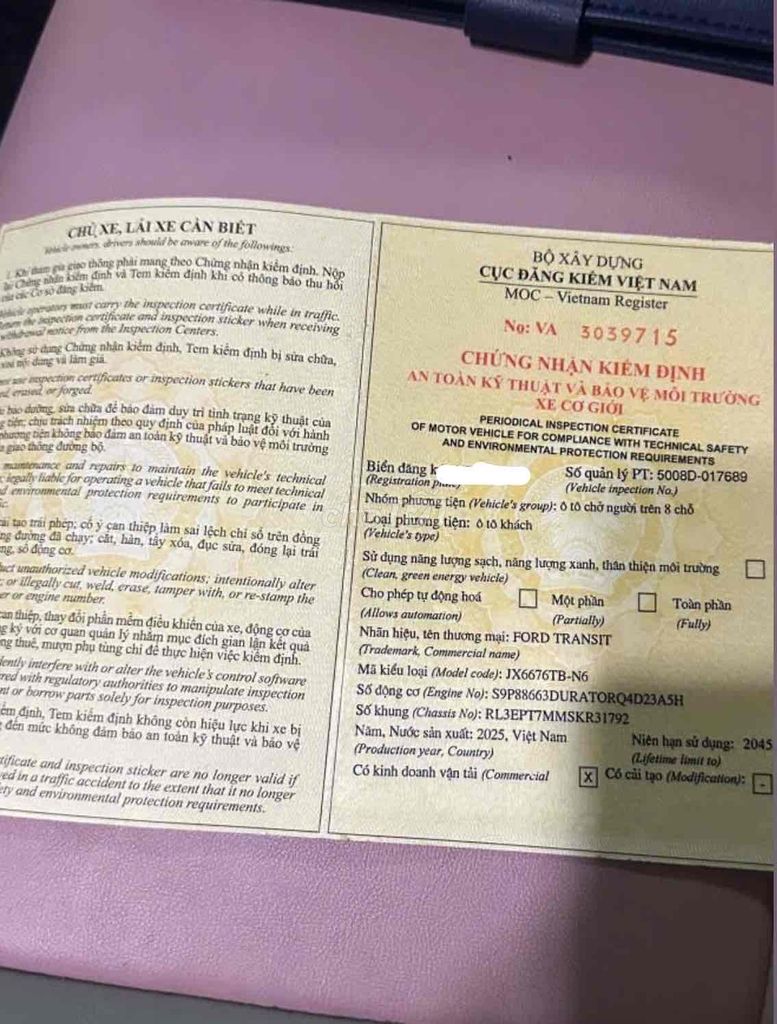 CHỦ XE, LÁI XE CẦN BIẾT
Vehicle owners, drivers should be aware of the followings:
1. Khi tham gia giao thông phải mang theo Chứng nhận kiểm định. Nộp
lại Chứng nhận kiểm định và Tem kiểm định khi có thông báo thu hồi
của các Cơ sở đăng kiểm.
Vehicle operators must carry the inspection certificate while in traffic.
the inspection certificate and inspection sticker when receiving
withdrawal notice from the Inspection Centers.
Không sử dụng Chứng nhận kiểm định, Tem kiểm định bị sửa chữa,
nội dung và làm giả.
use inspection certificates or inspection stickers that have been
erased, or forged.
bảo dưỡng, sửa chữa để bảo đảm duy trì tình trạng kỹ thuật của
chịu trách nhiệm theo quy định của pháp luật đối với hành
phương tiện không bảo đảm an toàn kỹ thuật và bảo vệ môi trường
giao thông đường bộ.
maintenance and repairs to maintain the vehicle's technical
legally liable for operating a vehicle that fails to meet technical
environmental protection requirements to participate in
tạo trái phép; cố ý can thiệp làm sai lệch chỉ số trên đồng
đường đã chạy; cắt, hàn, tẩy xóa, đục sửa, đóng lại trái
số động cơ.
unauthorized vehicle modifications; intentionally alter
or illegally cut, weld, erase, tamper with, or re-stamp the
or engine number.
can thiệp, thay đổi phần mềm điều khiển của xe, động cơ của
ký với cơ quan quản lý nhằm mục đích gian lận kết quả
thuê, mượn phụ tùng chỉ để thực hiện việc kiểm định.
interfere with or alter the vehicle's control software
with regulatory authorities to manipulate inspection
or borrow parts solely for inspection purposes.
định, Tem kiểm định không còn hiệu lực khi xe bị
đến mức không đảm bảo an toàn kỹ thuật và bảo vệ
and inspection sticker are no longer valid if
in a traffic accident to the extent that it no longer
and environmental protection requirements.
BỘ XÂY DỰNG
CỤC ĐĂNG KIỂM VIỆT NAM
MOC – Vietnam Register
No: VA 3039715
CHỨNG NHẬN KIỂM ĐỊNH
AN TOÀN KỸ THUẬT VÀ BẢO VỆ MÔI TRƯỜNG
XE CƠ GIỚI
PERIODICAL INSPECTION CERTIFICATE
OF MOTOR VEHICLE FOR COMPLIANCE WITH TECHNICAL SAFETY
AND ENVIRONMENTAL PROTECTION REQUIREMENTS
Biển đăng k Số quản lý PT: 5008D-017689
(Registration (Vehicle inpection No.)
Nhóm phương tiện (Vehicle's group): ô tô chở người trên 8 chỗ
Loại phương tiện: ô tô khách
(Vehicle's type)
Sử dụng năng lượng sạch, năng lượng xanh, thân thiện môi trường
(Clean, green energy vehicle)
Cho phép tự động hoá Một phần Toàn phần
(Allows automation) (Partially) (Fully)
Nhãn hiệu, tên thương mại: FORD TRANSIT
(Trademark, Commercial name)
Mã kiểu loại (Model code): JX6676TB-N6
Số động cơ (Engine No): S9P88663DURATORQ4D23A5H
Số khung (Chassis No): RL3EPT7MMSKR31792
Năm, Nước sản xuất: 2025, Việt Nam Niên hạn sử dụng: 2045
(Production year, Country) (Lifetime limit to)
Có kinh doanh vận tải (Commercial X Có cải tạo (Modification): -